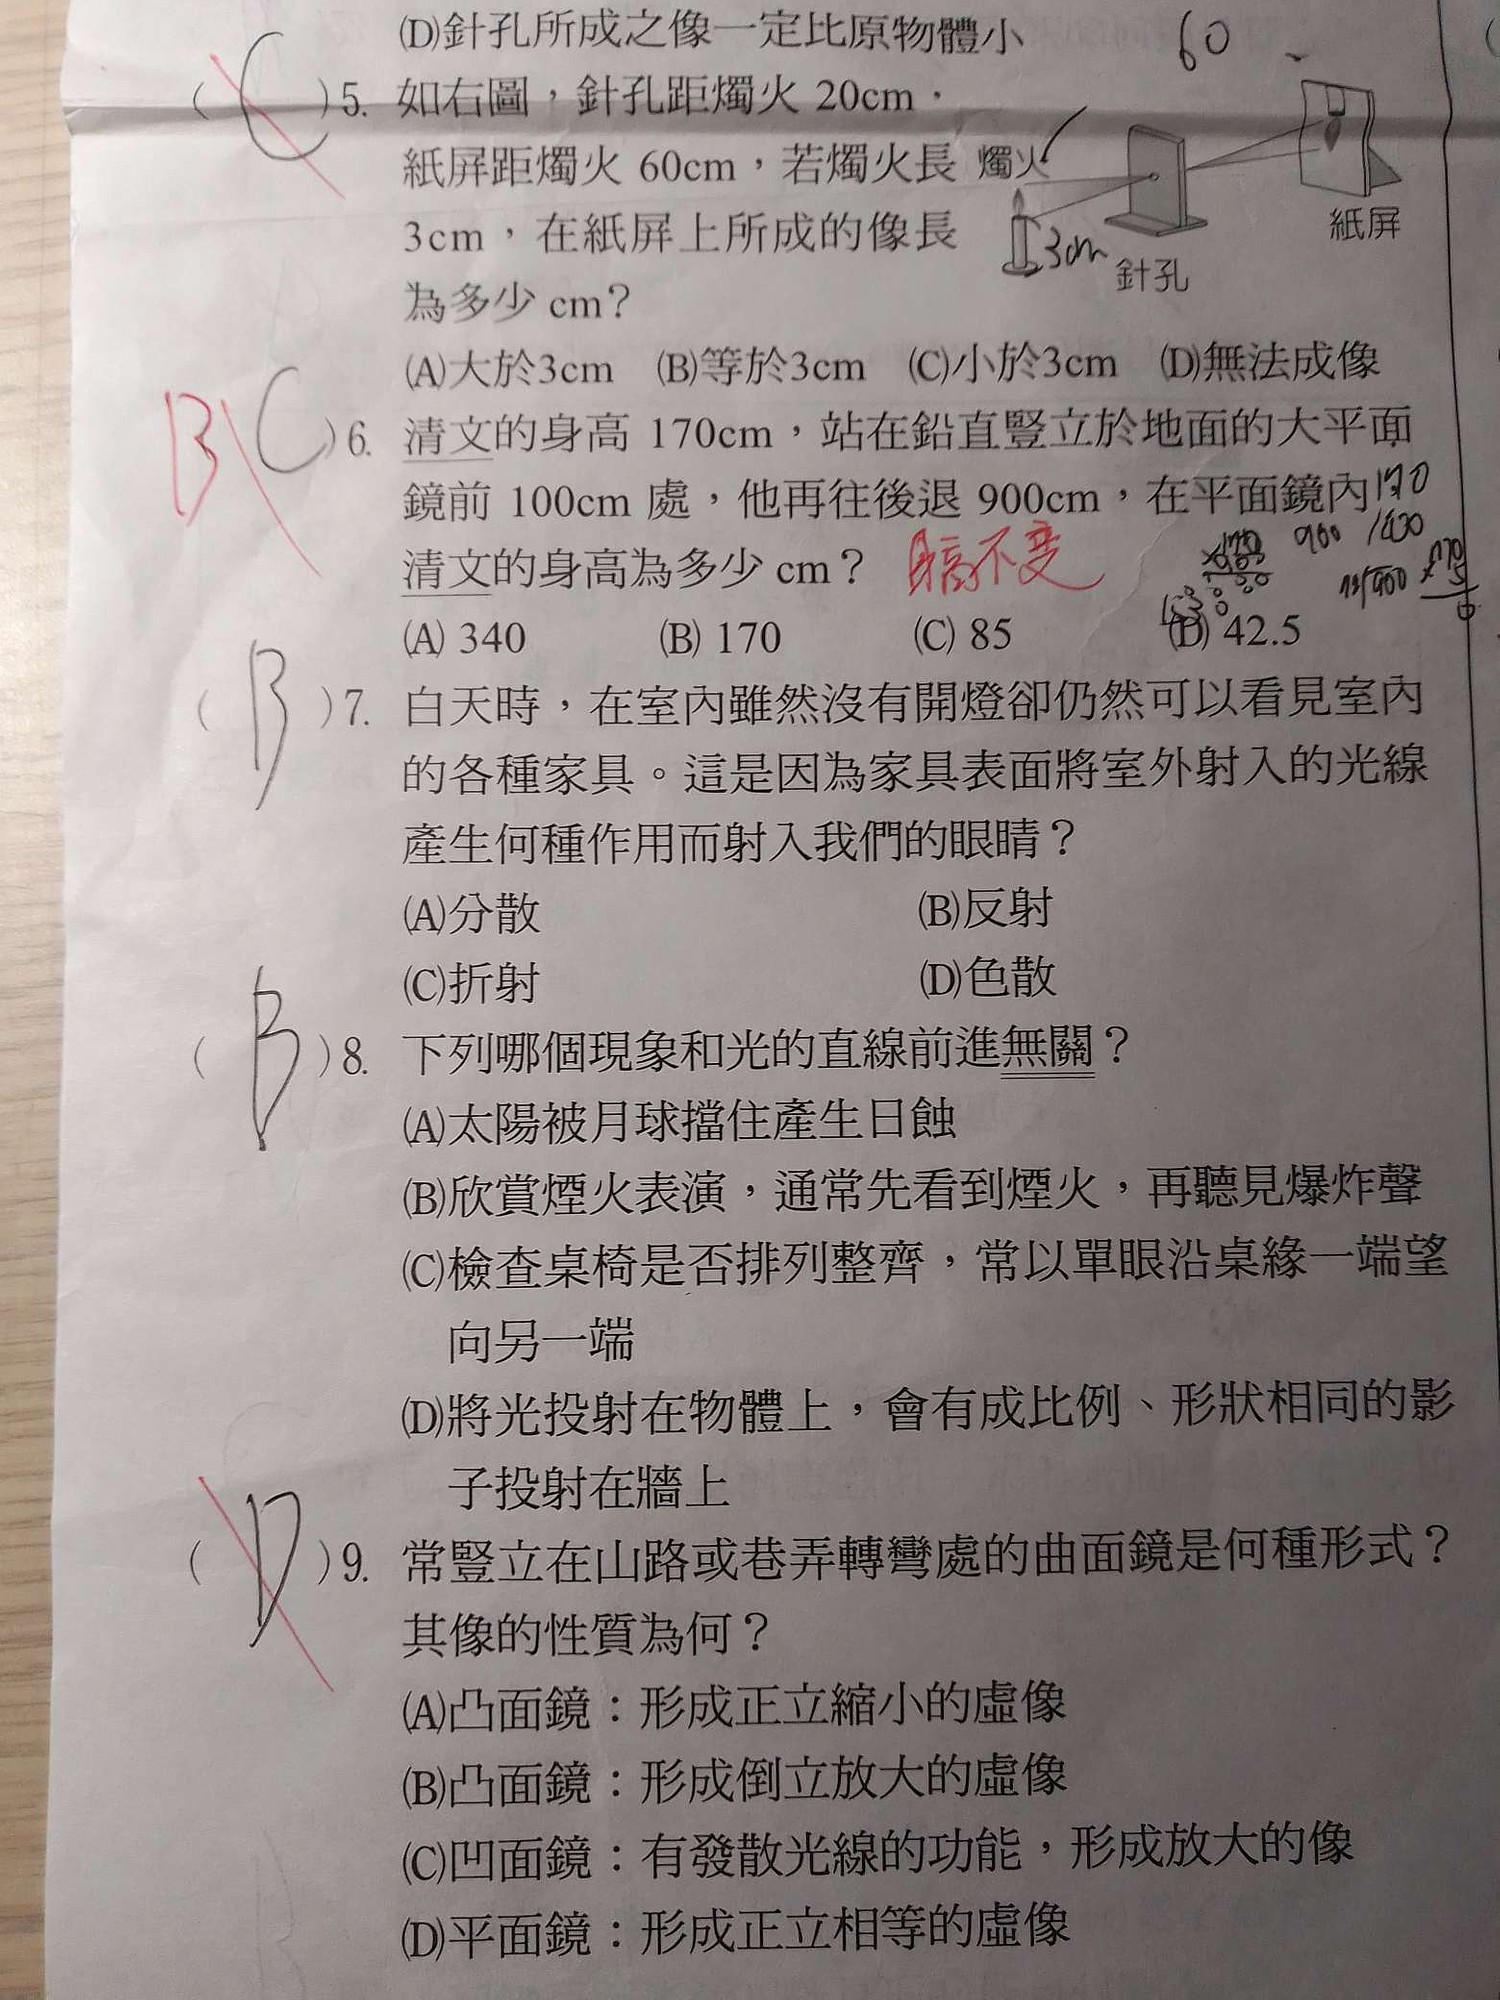 (D)針孔所成之像一定比原物體小
60
( C )5. 如右圖，針孔距燭火 20cm，
紙屏距燭火 60cm，若燭火長
3cm，在紙屏上所成的像長
為多少 cm？
燭火
3cm
針孔
紙屏
(A)大於3cm (B)等於3cm (C)小於3cm (D)無法成像
B C )6. 清文的身高 170cm，站在鉛直豎立於地面的大平面
鏡前 100cm 處，他再往後退 900cm，在平面鏡內
清文的身高為多少 cm？ 身高不變
170
900
(A) 340 (B) 170 (C) 85 (D) 42.5
( B )7. 白天時，在室內雖然沒有開燈卻仍然可以看見室內
的各種家具。這是因為家具表面將室外射入的光線
產生何種作用而射入我們的眼睛？
(A)分散 (B)反射
(C)折射 (D)色散
( B )8. 下列哪個現象和光的直線前進無關？
(A)太陽被月球擋住產生日蝕
(B)欣賞煙火表演，通常先看到煙火，再聽見爆炸聲
(C)檢查桌椅是否排列整齊，常以單眼沿桌緣一端望
向另一端
(D)將光投射在物體上，會有成比例、形狀相同的影
子投射在牆上
( D )9. 常豎立在山路或巷弄轉彎處的曲面鏡是何種形式？
其像的性質為何？
(A)凸面鏡：形成正立縮小的虛像
(B)凸面鏡：形成倒立放大的虛像
(C)凹面鏡：有發散光線的功能，形成放大的像
(D)平面鏡：形成正立相等的虛像